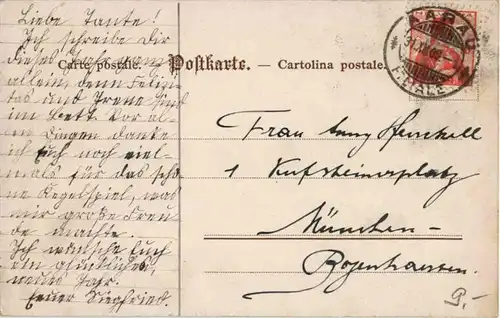 Liebe Tante!
Ich schreibe Dir
dieses ganz
allein, denn Felizi-
tas und Irene sind
im Bett. Vor al-
len Dingen danke
ich Euch noch viel-
mals für das schö-
ne Kegelspiel, was
mir große Freu-
de machte.
Ich wünsche Euch
ein glückliches,
neues Jahr.
Euer Siegfried.
Carte postale. – Postkarte. – Cartolina postale.
AARAU
FILIALE
Frau Henckell
1 Kufsteinerplatz
München –
Bogenhausen.
9.-